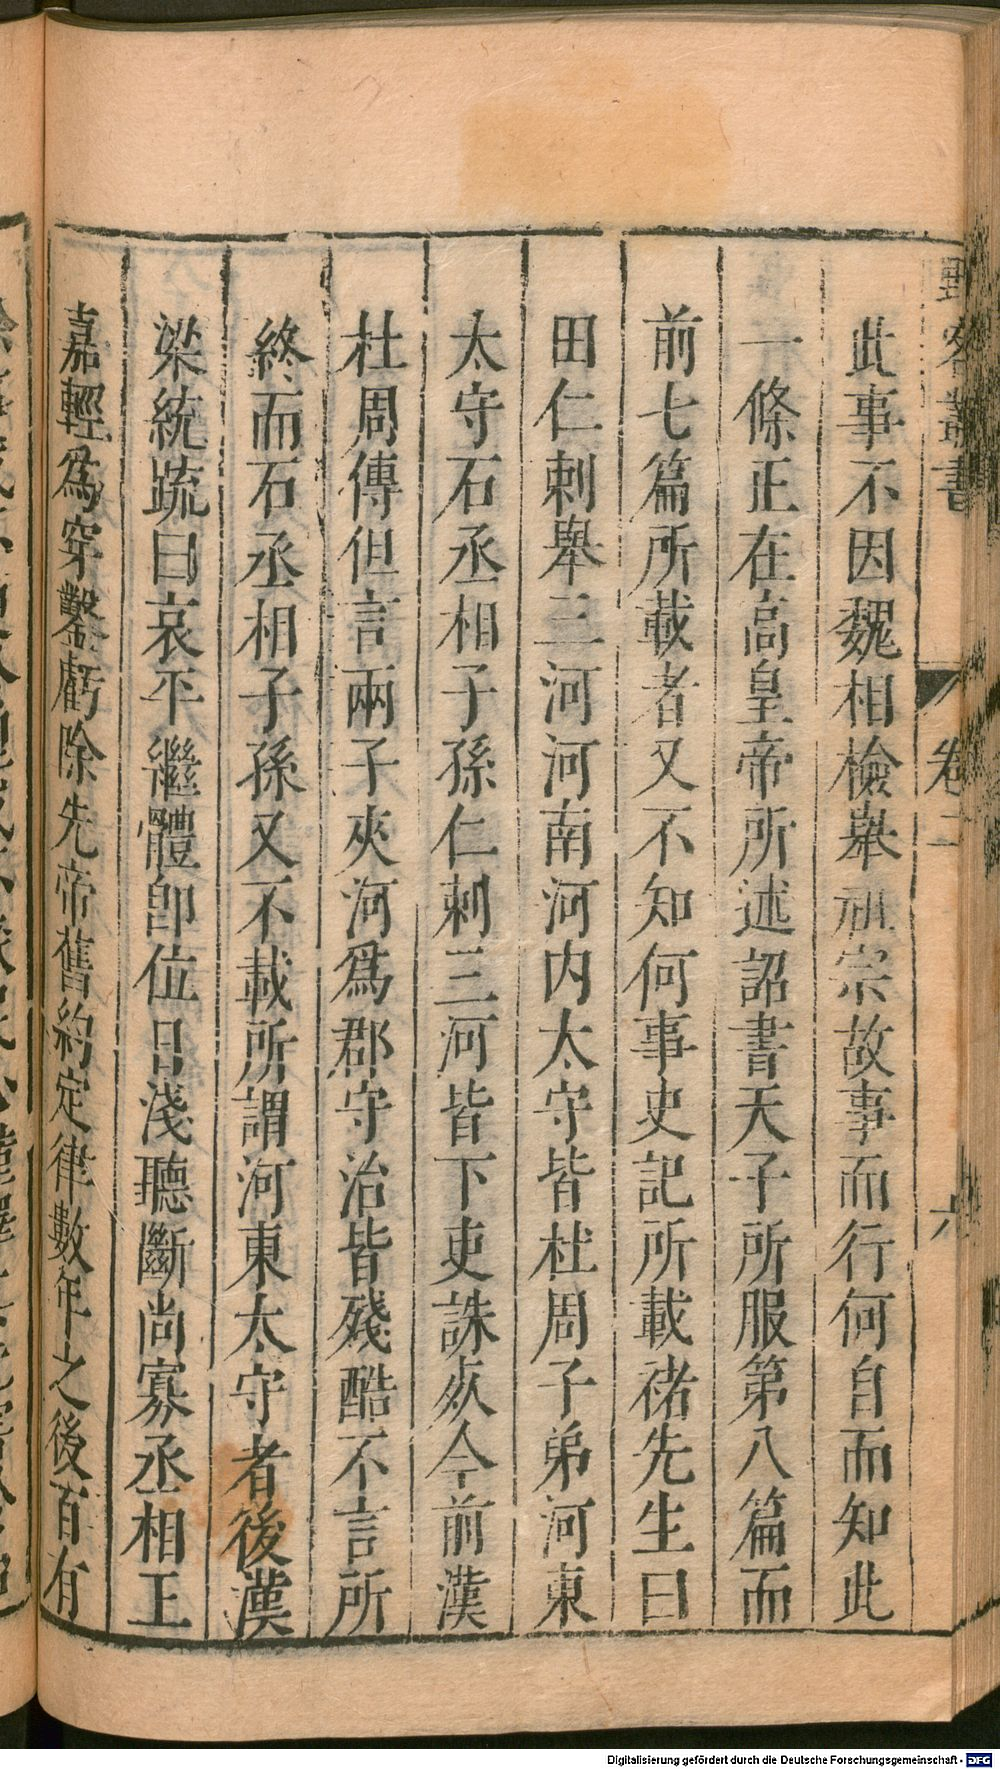 野客叢書 卷二 六
此事不因魏相檢舉祖宗故事而行何自而知此
一條正在高皇帝所述詔書天子所服第八篇而
前七篇所載者又不知何事史記所載禇先生曰
田仁刺舉三河河南河内太守皆杜周子弟河東
太守石丞相子孫仁刺三河皆下吏誅死今前漢
杜周傳但言兩子夾河爲郡守治皆殘酷不言所
終而石丞相子孫又不載所謂河東太守者後漢
梁統䟽曰哀平繼體即位日淺聽斷尚寡丞相王
嘉輕爲穿鑿虧除先帝舊約定律數年之後百有
Digitalisierung gefördert durch die Deutsche Forschungsgemeinschaft - DFG